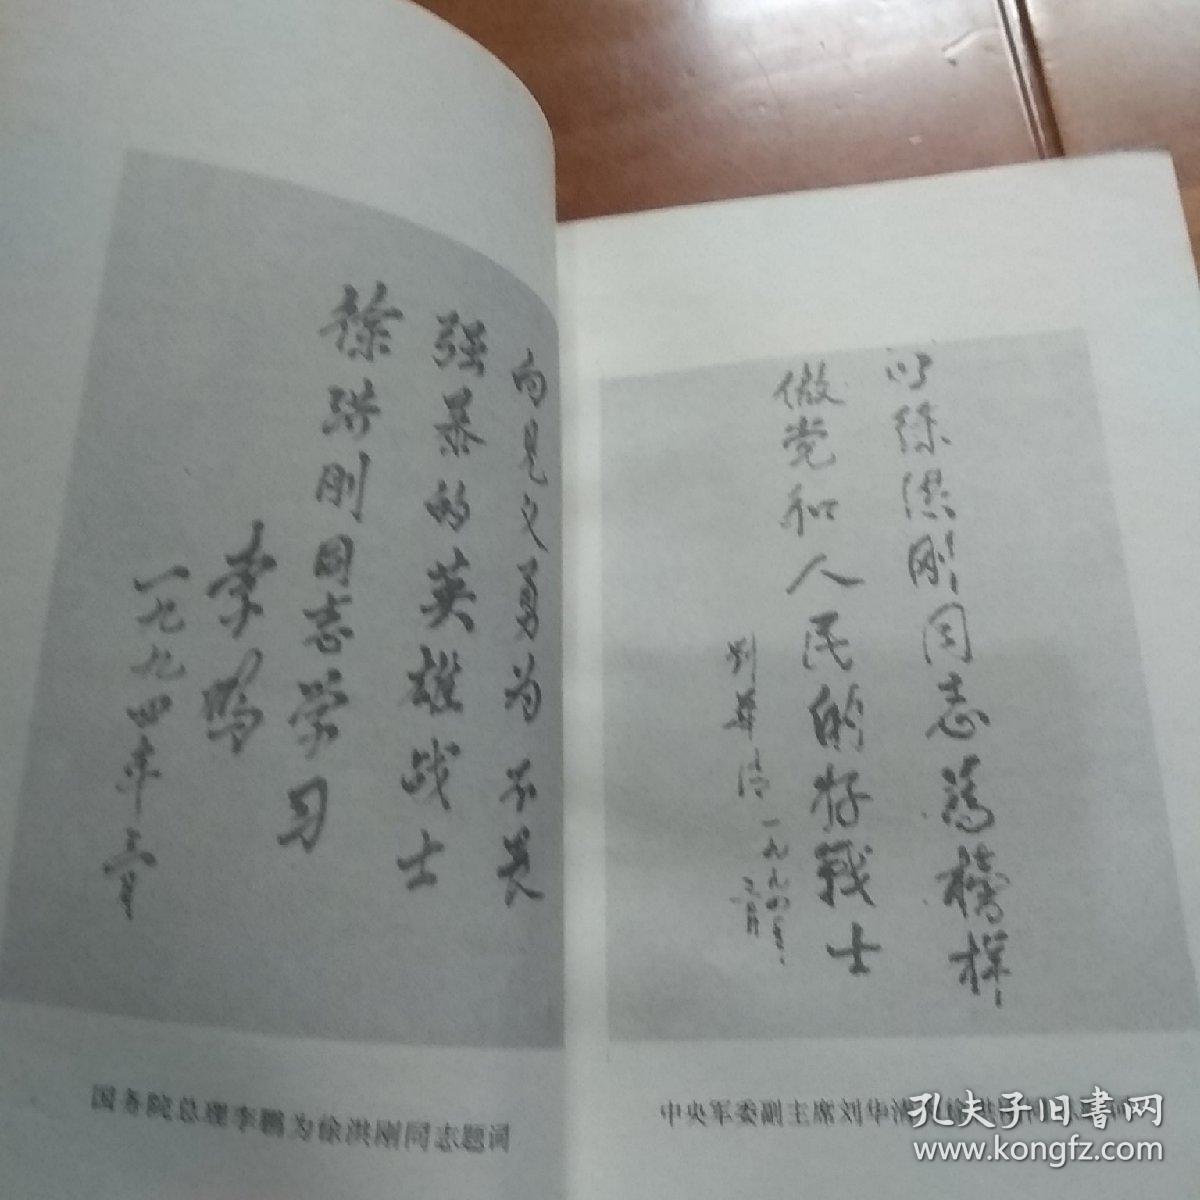 向见义勇为不畏
强暴的英雄战士
徐洪刚同志学习
李鹏
一九九四年二月
国务院总理李鹏为徐洪刚同志题词
以徐洪刚同志为榜样
做党和人民的好戰士
劉華清
一九九四年
二月
中央军委副主席刘华清
孔夫子旧书网
www.kongfz.com